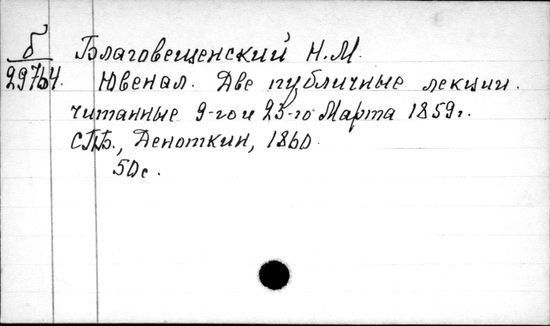 б
29764.
Благовещенский Н.М.
Ювенал. Две публичные лекции.
читанные 9-го и 23-го Марта 1859 г.
СПБ., Деноткин, 1860.
50 с.